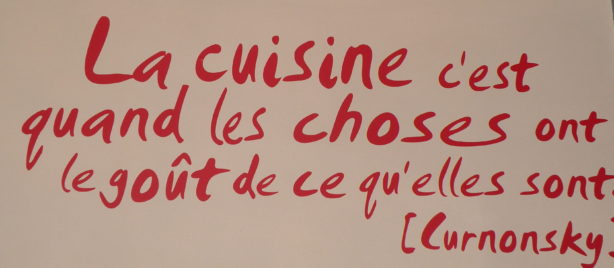 La cuisine c'est
quand les choses ont
le goût de ce qu'elles sont.
[Curnonsky]